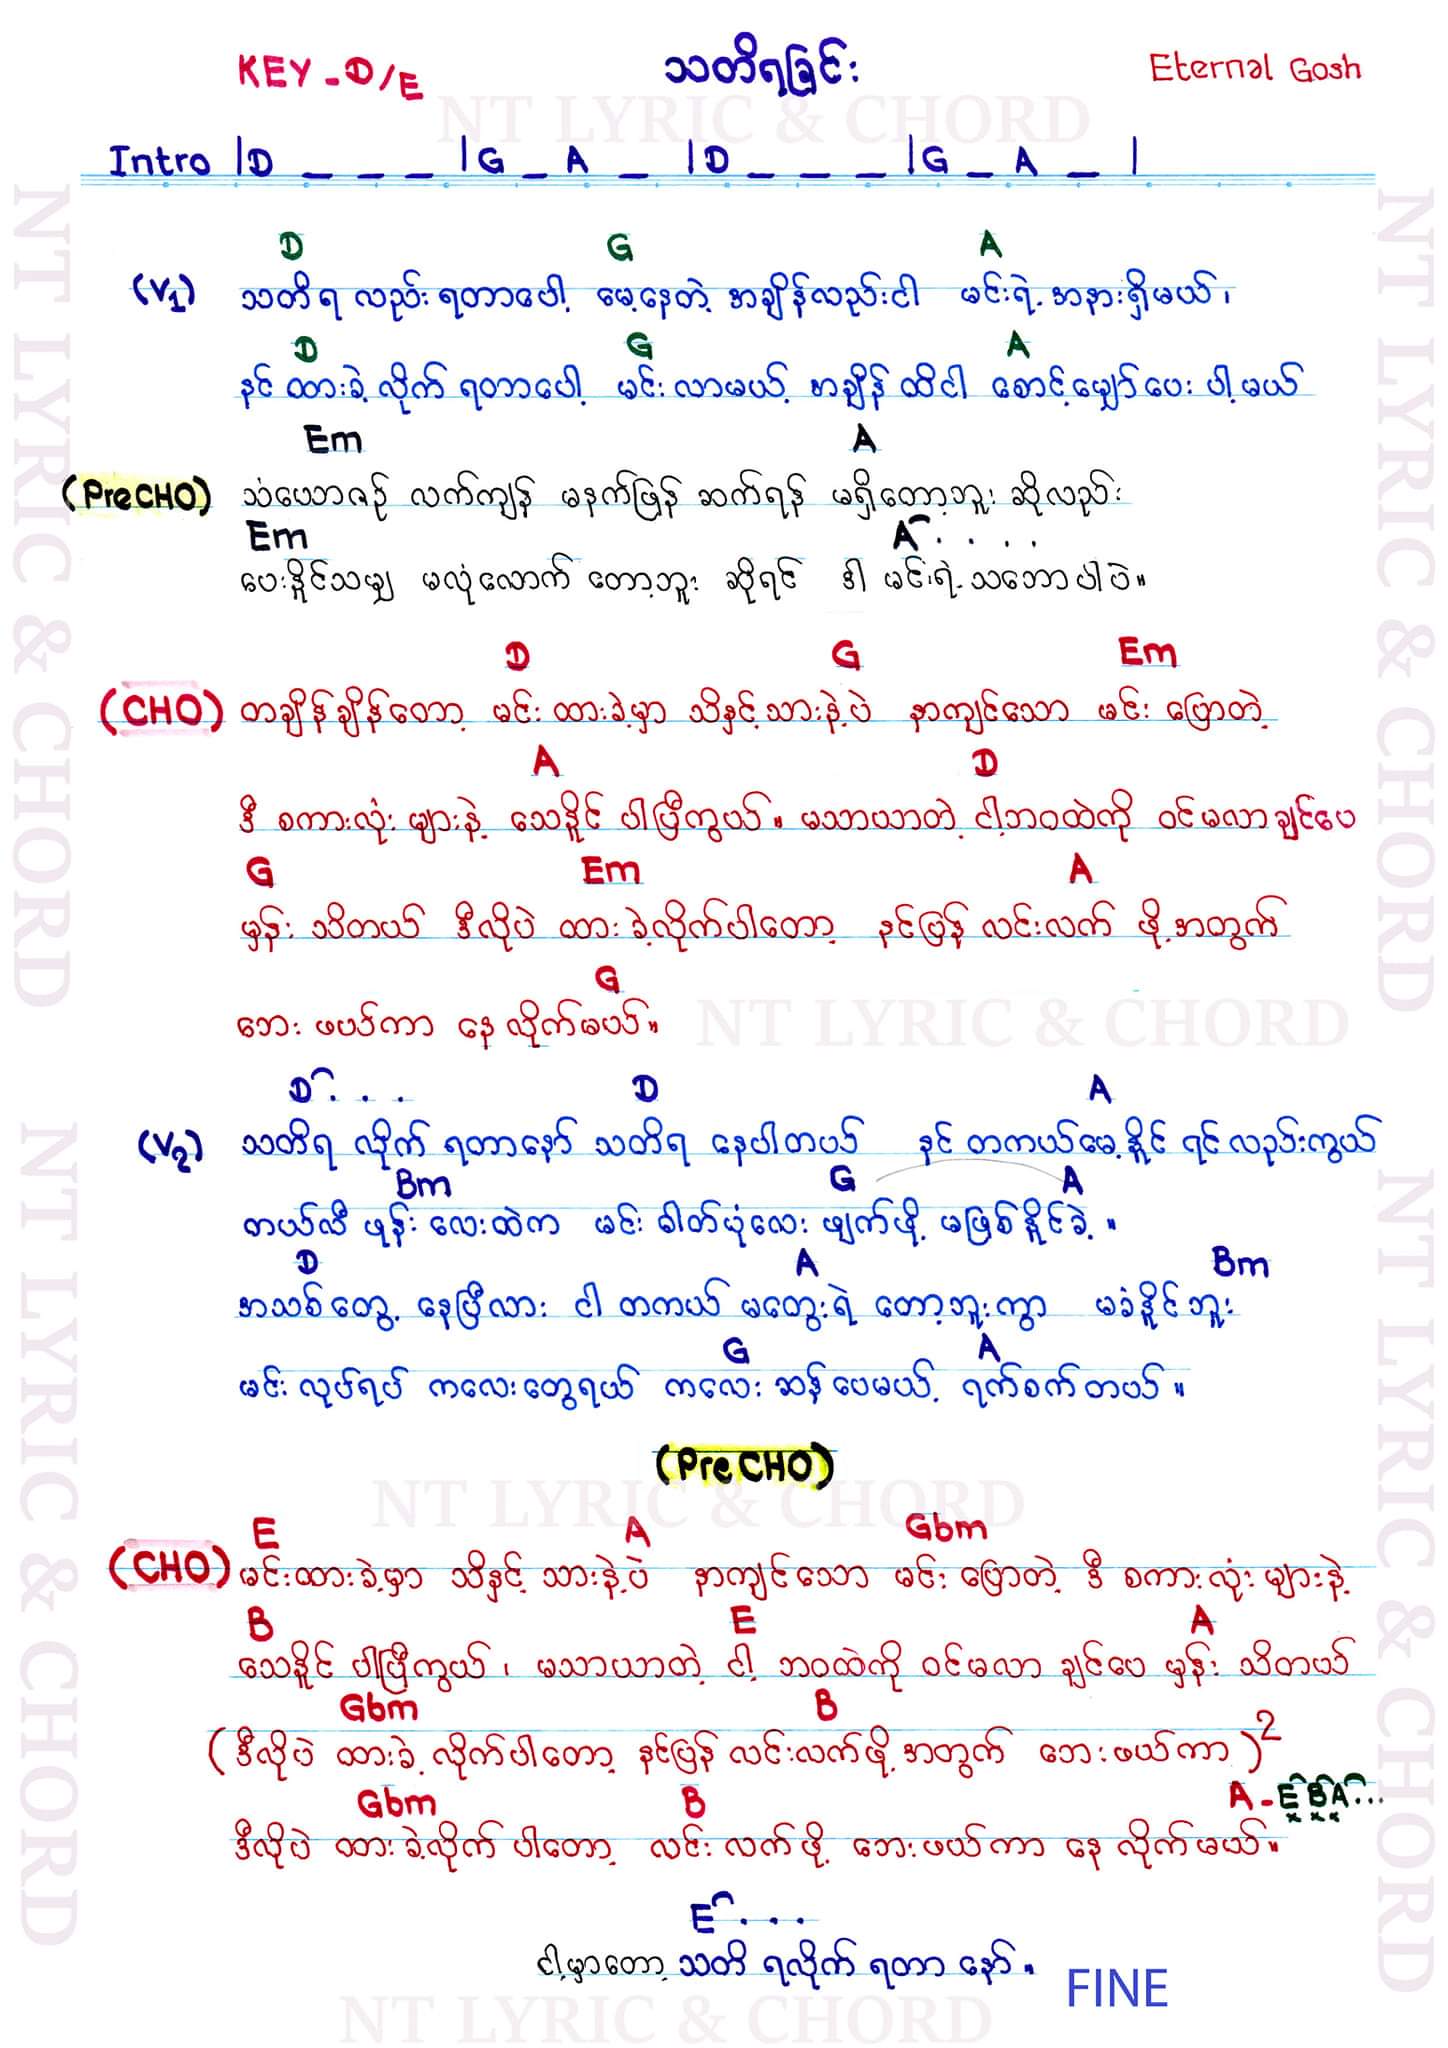 KEY - D/E
သတိရခြင်း
Eternal Gosh
NT LYRIC & CHORD
Intro |D _ _ _ |G _ A _ |D _ _ _ |G _ A _ |
D G A
(V1) သတိရ လည်း ရတာပေါ့ မေ့နေတဲ့ အချိန်လည်းငါ မင်းရဲ့ အနားရှိမယ်၊
D G A
နင် ထားခဲ့ လိုက် ရတာပေါ့ မင်း လာမယ့် အချိန် ထိငါ စောင့်မျှော်ပေး ပါ့မယ်
Em A
(PreCHO) သံယောဇဉ် လက်ကျန် မနက်ဖြန် ဆက်ရန် မရှိတော့ဘူး ဆိုလည်း
Em A . . . .
ပေးနိူင်သမျှ မလုံလောက် တော့ဘူး ဆိုရင် ဒါ မင်းရဲ့သဘောပါပဲ။
D G Em
(CHO) တချိန်ချိန်တော့ မင်း ထားခဲ့မှာ သိနှင့်သားနဲ့ပဲ နာကျင်သော မင်း ပြောတဲ့
A D
ဒီ စကားလုံး များနဲ့ သေနိူင် ပါပြီကွယ်။ မသာယာတဲ့ ငါ့ဘဝထဲကို ဝင်မလာချင်ပေ
G Em A
မှန်း သိတယ် ဒီလိုပဲ ထား ခဲ့လိုက်ပါတော့ နင်ဖြန့် လင်းလက် ဖို့ အတွက်
G
ဘေး ဖယ်ကာ နေ လိုက်မယ်။
NT LYRIC & CHORD
D . . . D A
(V2) သတိရ လိုက် ရတာနော် သတိရ နေပါတယ် နင် တကယ်မေ့နိူင် ရင်လည်းကွယ်
Bm G A
တယ်လီ ဖုန်း လေးထဲက မင်း ဓါတ်ပုံလေး ဖျက်ဖို့ မဖြစ်နိူင်ခဲ့။
D A Bm
အသစ်တွေ့ နေပြီလား ငါ တကယ် မတွေးရဲ တော့ဘူးကွာ မခံနိူင်ဘူး
G A
မင်း လုပ်ရပ် ကလေးတွေရယ် ကလေး ဆန်ပေမယ့် ရက်စက်တယ်။
(PreCHO)
NT LYRIC & CHORD
E A Gbm
(CHO) မင်းထားခဲ့မှာ သိနှင့် သားနဲ့ပဲ နာကျင်သော မင်း ပြောတဲ့ ဒီ စကားလုံး များနဲ့
B E A
သေနိူင် ပါပြီကွယ်၊ မသာယာတဲ့ ငါ့ ဘဝထဲကို ဝင်မလာ ချင်ပေ မှန်း သိတယ်
Gbm B
(ဒီလိုပဲ ထားခဲ့ လိုက်ပါတော့ နင်ဖြန့် လင်းလက်ဖို့ အတွက် ဘေးဖယ်ကာ)2
Gbm B A - E B A . . .
ဒီလိုပဲ ထား ခဲ့လိုက် ပါတော့ လင်း လက်ဖို့ ဘေးဖယ်ကာ နေ လိုက်မယ်။
E . . .
ငါ့မှာတော့ သတိ ရလိုက် ရတာ နော်။
FINE
NT LYRIC & CHORD
NT LYRIC & CHORD
NT LYRIC & CHORD
NT LYRIC & CHORD
NT LYRIC & CHORD